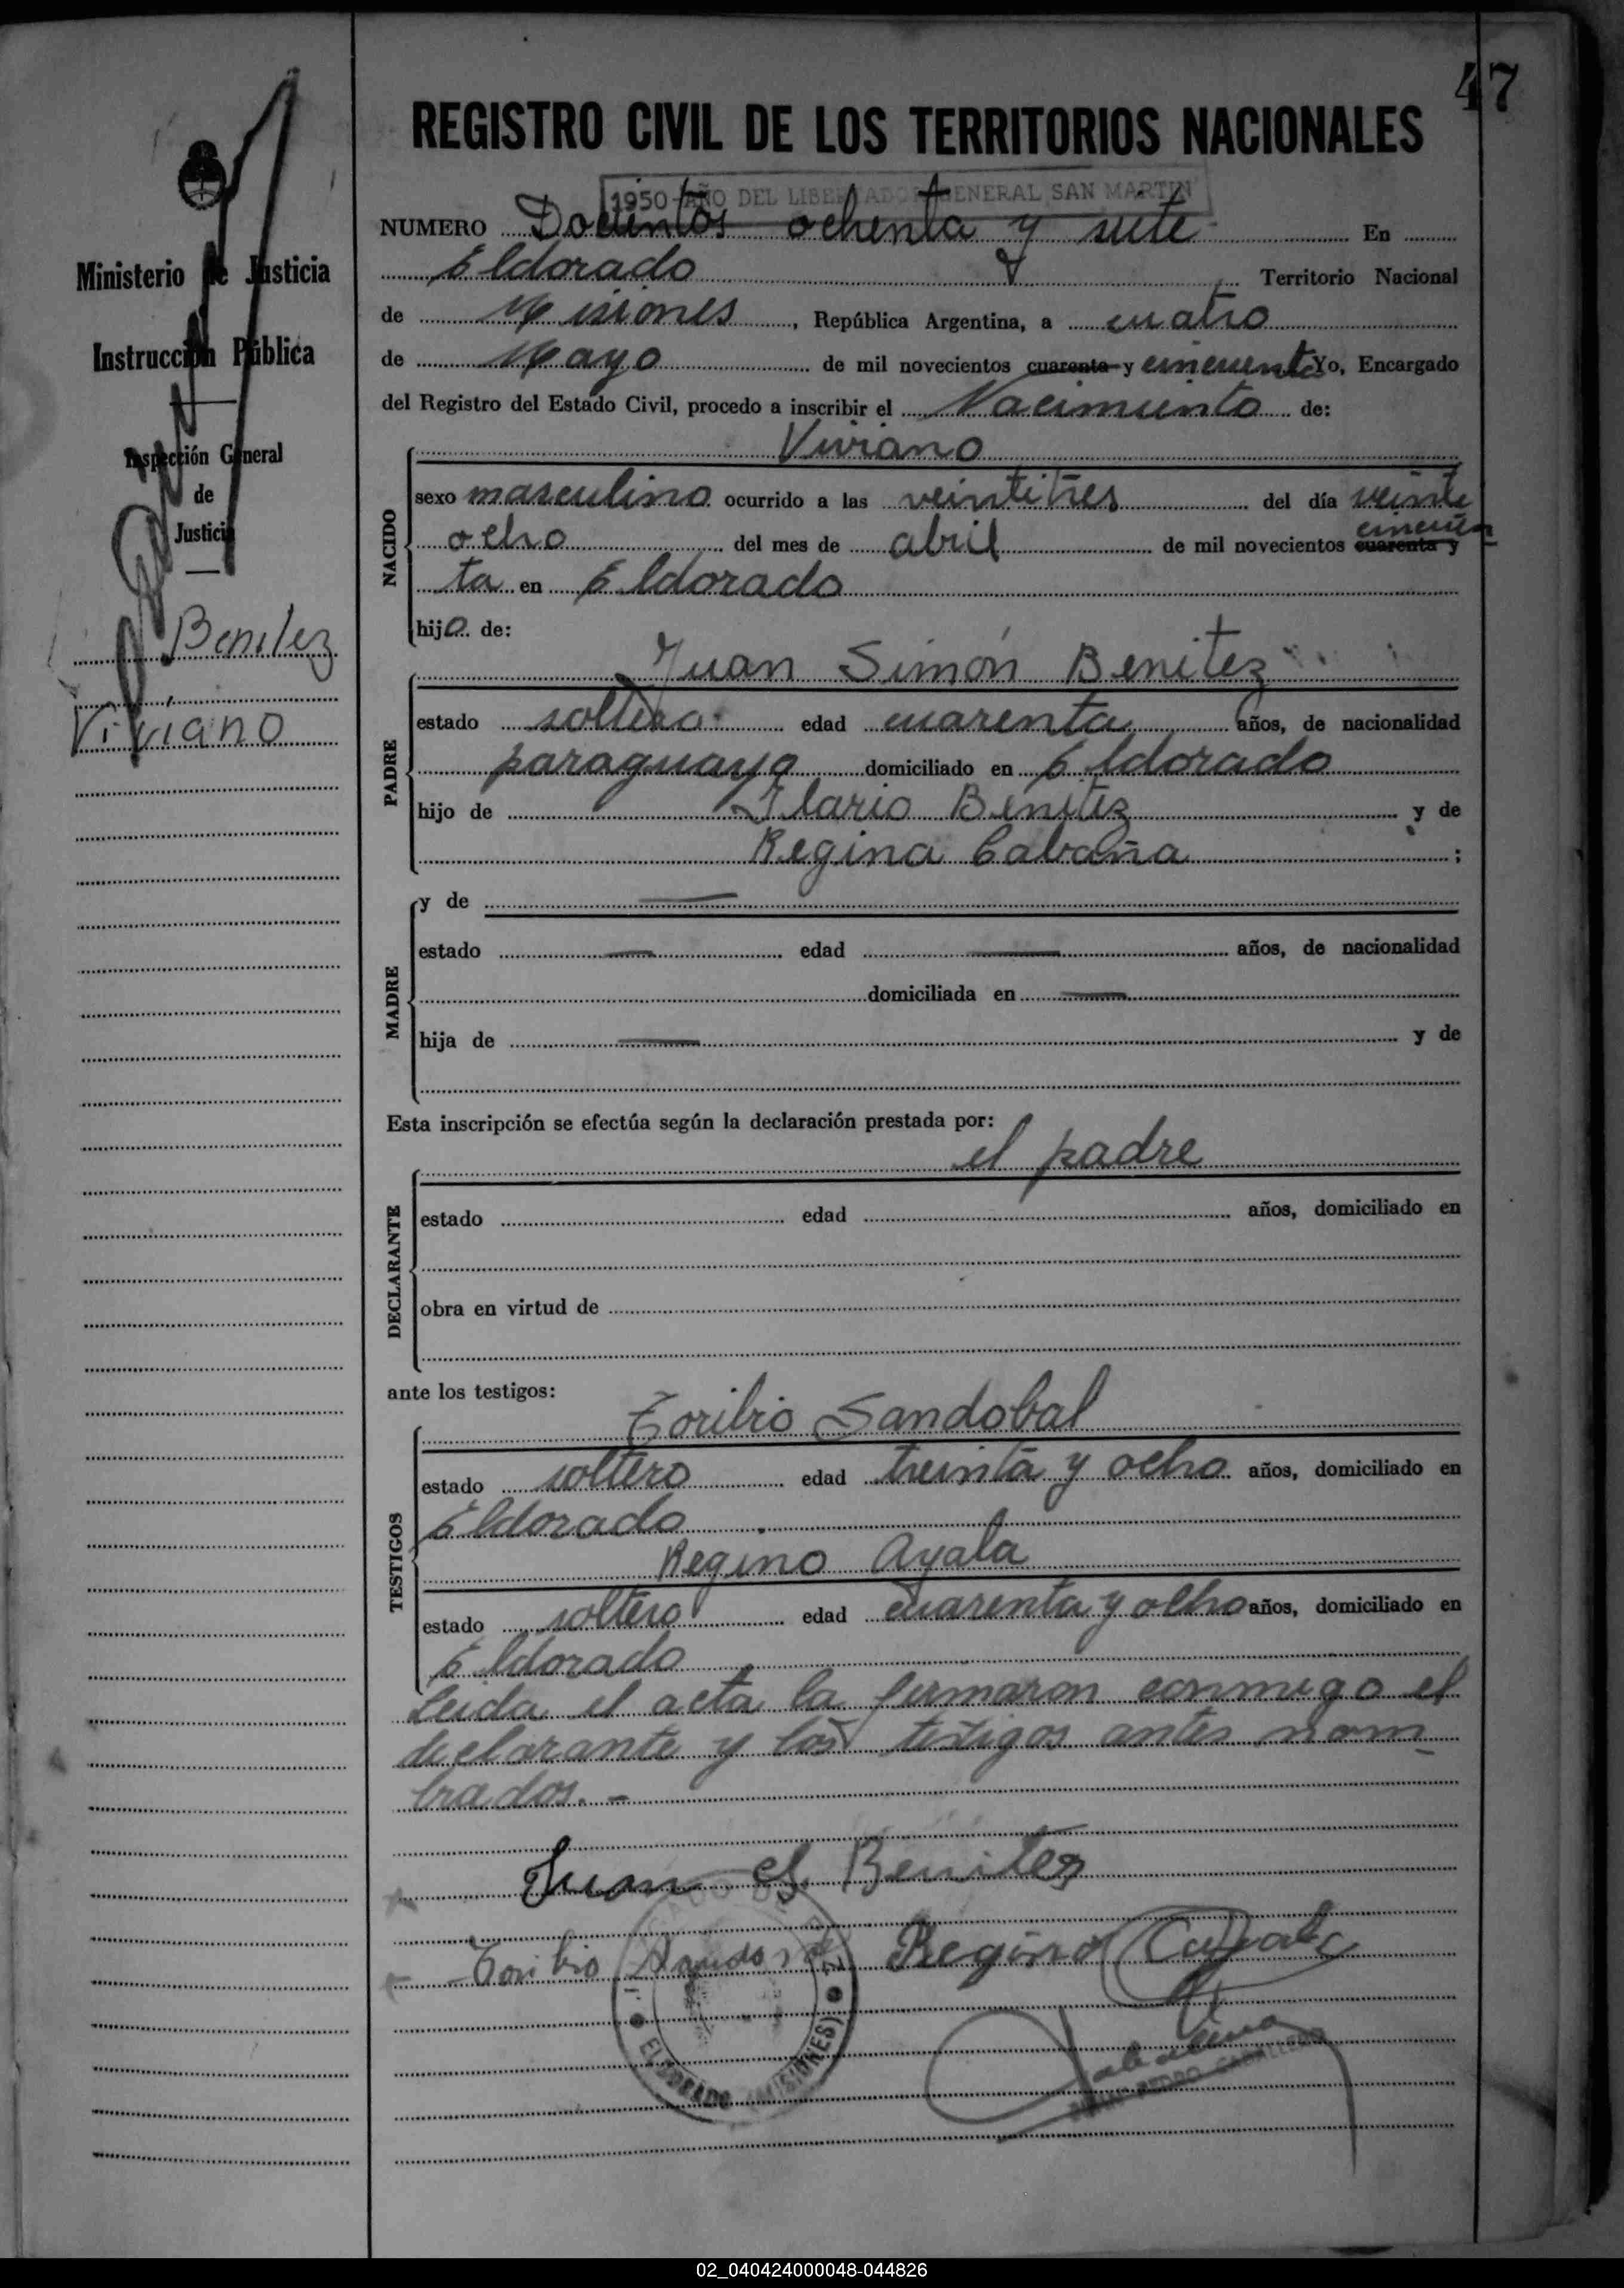 47
REGISTRO CIVIL DE LOS TERRITORIOS NACIONALES
1950-AÑO DEL LIBERTADOR GENERAL SAN MARTIN
NUMERO Docientos ochenta y siete En
Eldorado Territorio Nacional
de Misiones, República Argentina, a cuatro
de Mayo de mil novecientos cuarenta y cincuenta Yo, Encargado
del Registro del Estado Civil, procedo a inscribir el Nacimiento de:
Viviano
NACIDO
sexo masculino ocurrido a las veintitres del día veinte
ocho del mes de abril de mil novecientos cuarenta y cincuen
ta en Eldorado
hijo de:
Juan Simón Benitez
PADRE
estado soltero edad cuarenta años, de nacionalidad
paraguaya domiciliado en Eldorado
hijo de Ilario Benitez y de
Regina Cabaña ;
MADRE
y de —
estado — edad — años, de nacionalidad
domiciliada en —
hija de — y de
Esta inscripción se efectúa según la declaración prestada por:
el padre
DECLARANTE
estado edad años, domiciliado en
obra en virtud de
ante los testigos:
Toribio Sandobal
TESTIGOS
estado soltero edad treinta y ocho años, domiciliado en
Eldorado
Regino Ayala
estado soltero edad cuarenta y ocho años, domiciliado en
Eldorado
Leida el acta la firmaron conmigo el
declarante y los testigos antes nom
brados. -
Juan S. Benitez
Toribio Regino Ayala
ELDORADO (MISIONES)
PEDRO CABALLERO
Ministerio de Justicia
Instrucción Pública
Inspección General
de
Justicia
Benitez
Viviano
02_040424000048-044826